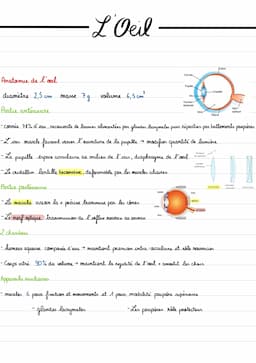 L'Oeil
Anatomie de l'oeil
diamètre 2,5 cm masse 7 g volume 6,5 cm³
Partie antérieure
- cornée 78% d'eau, recouverte de larmes alimentées par glandes lacrymales puis réparties par battements paupières
- L'iris muscle faisant varier l'ouverture de la pupille → modifier quantité de lumière
- La pupille espace circulaire au milieu de l'oeil, diaphragme de l'oeil
- Le cristallin lentille biconvexe, déformable par les muscles ciliaires
Partie postérieure
- La macula
- Le nerf optique transmission de l'influx nerveux au cerveau
2 chambres
- humeur aqueuse composée d'eau → maintient pression entre
- Corps vitré 90% du volume → maintient la rigidité de l'oeil + amortit les chocs
Appareils auxiliaires
- muscles 6 pour fixation et mouvements et 1 pour mobilité paupière supérieure
- glandes lacrymales - Les paupières rôle protecteur